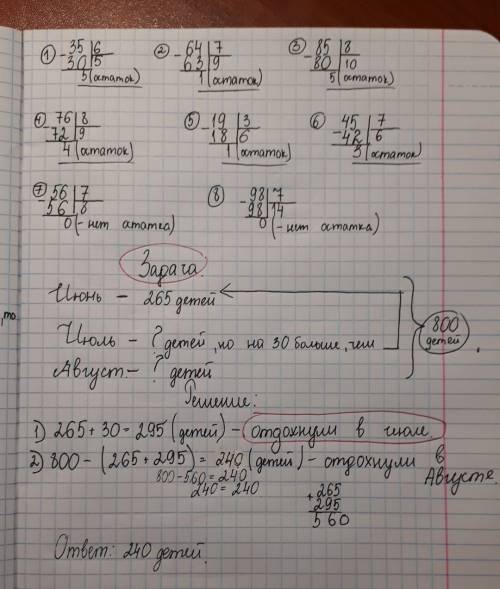 ① -35|6 ② -64|7 ③ -85|8
30|5 63|9 80|10
5 (остаток) 1 (остаток) 5 (остаток)
④ -76|8 ⑤ -19|3 ⑥ -45|7
72|9 18|6 42|6
4 (остаток) 1 (остаток) 3 (остаток)
⑦ -56|7 ⑧ -98|7
56|8 98|14
0 (- нет остатка) 0 (- нет остатка)
Задача.
Июнь - 265 детей
Июль - ? детей, но на 30 больше, чем
800 детей.
Август - ? детей
Решение:
1) 265 + 30 = 295 (детей) - отдохнули в июле.
2) 800 - (265 + 295) = 240 (детей) - отдохнули в Августе.
800 - 560 = 240
240 = 240
+265
295
560
Ответ: 240 детей.
,то